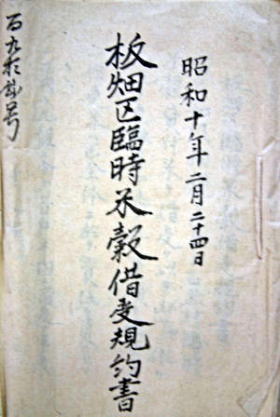 昭和十年二月二十四日
板畑区臨時米穀借受規約書